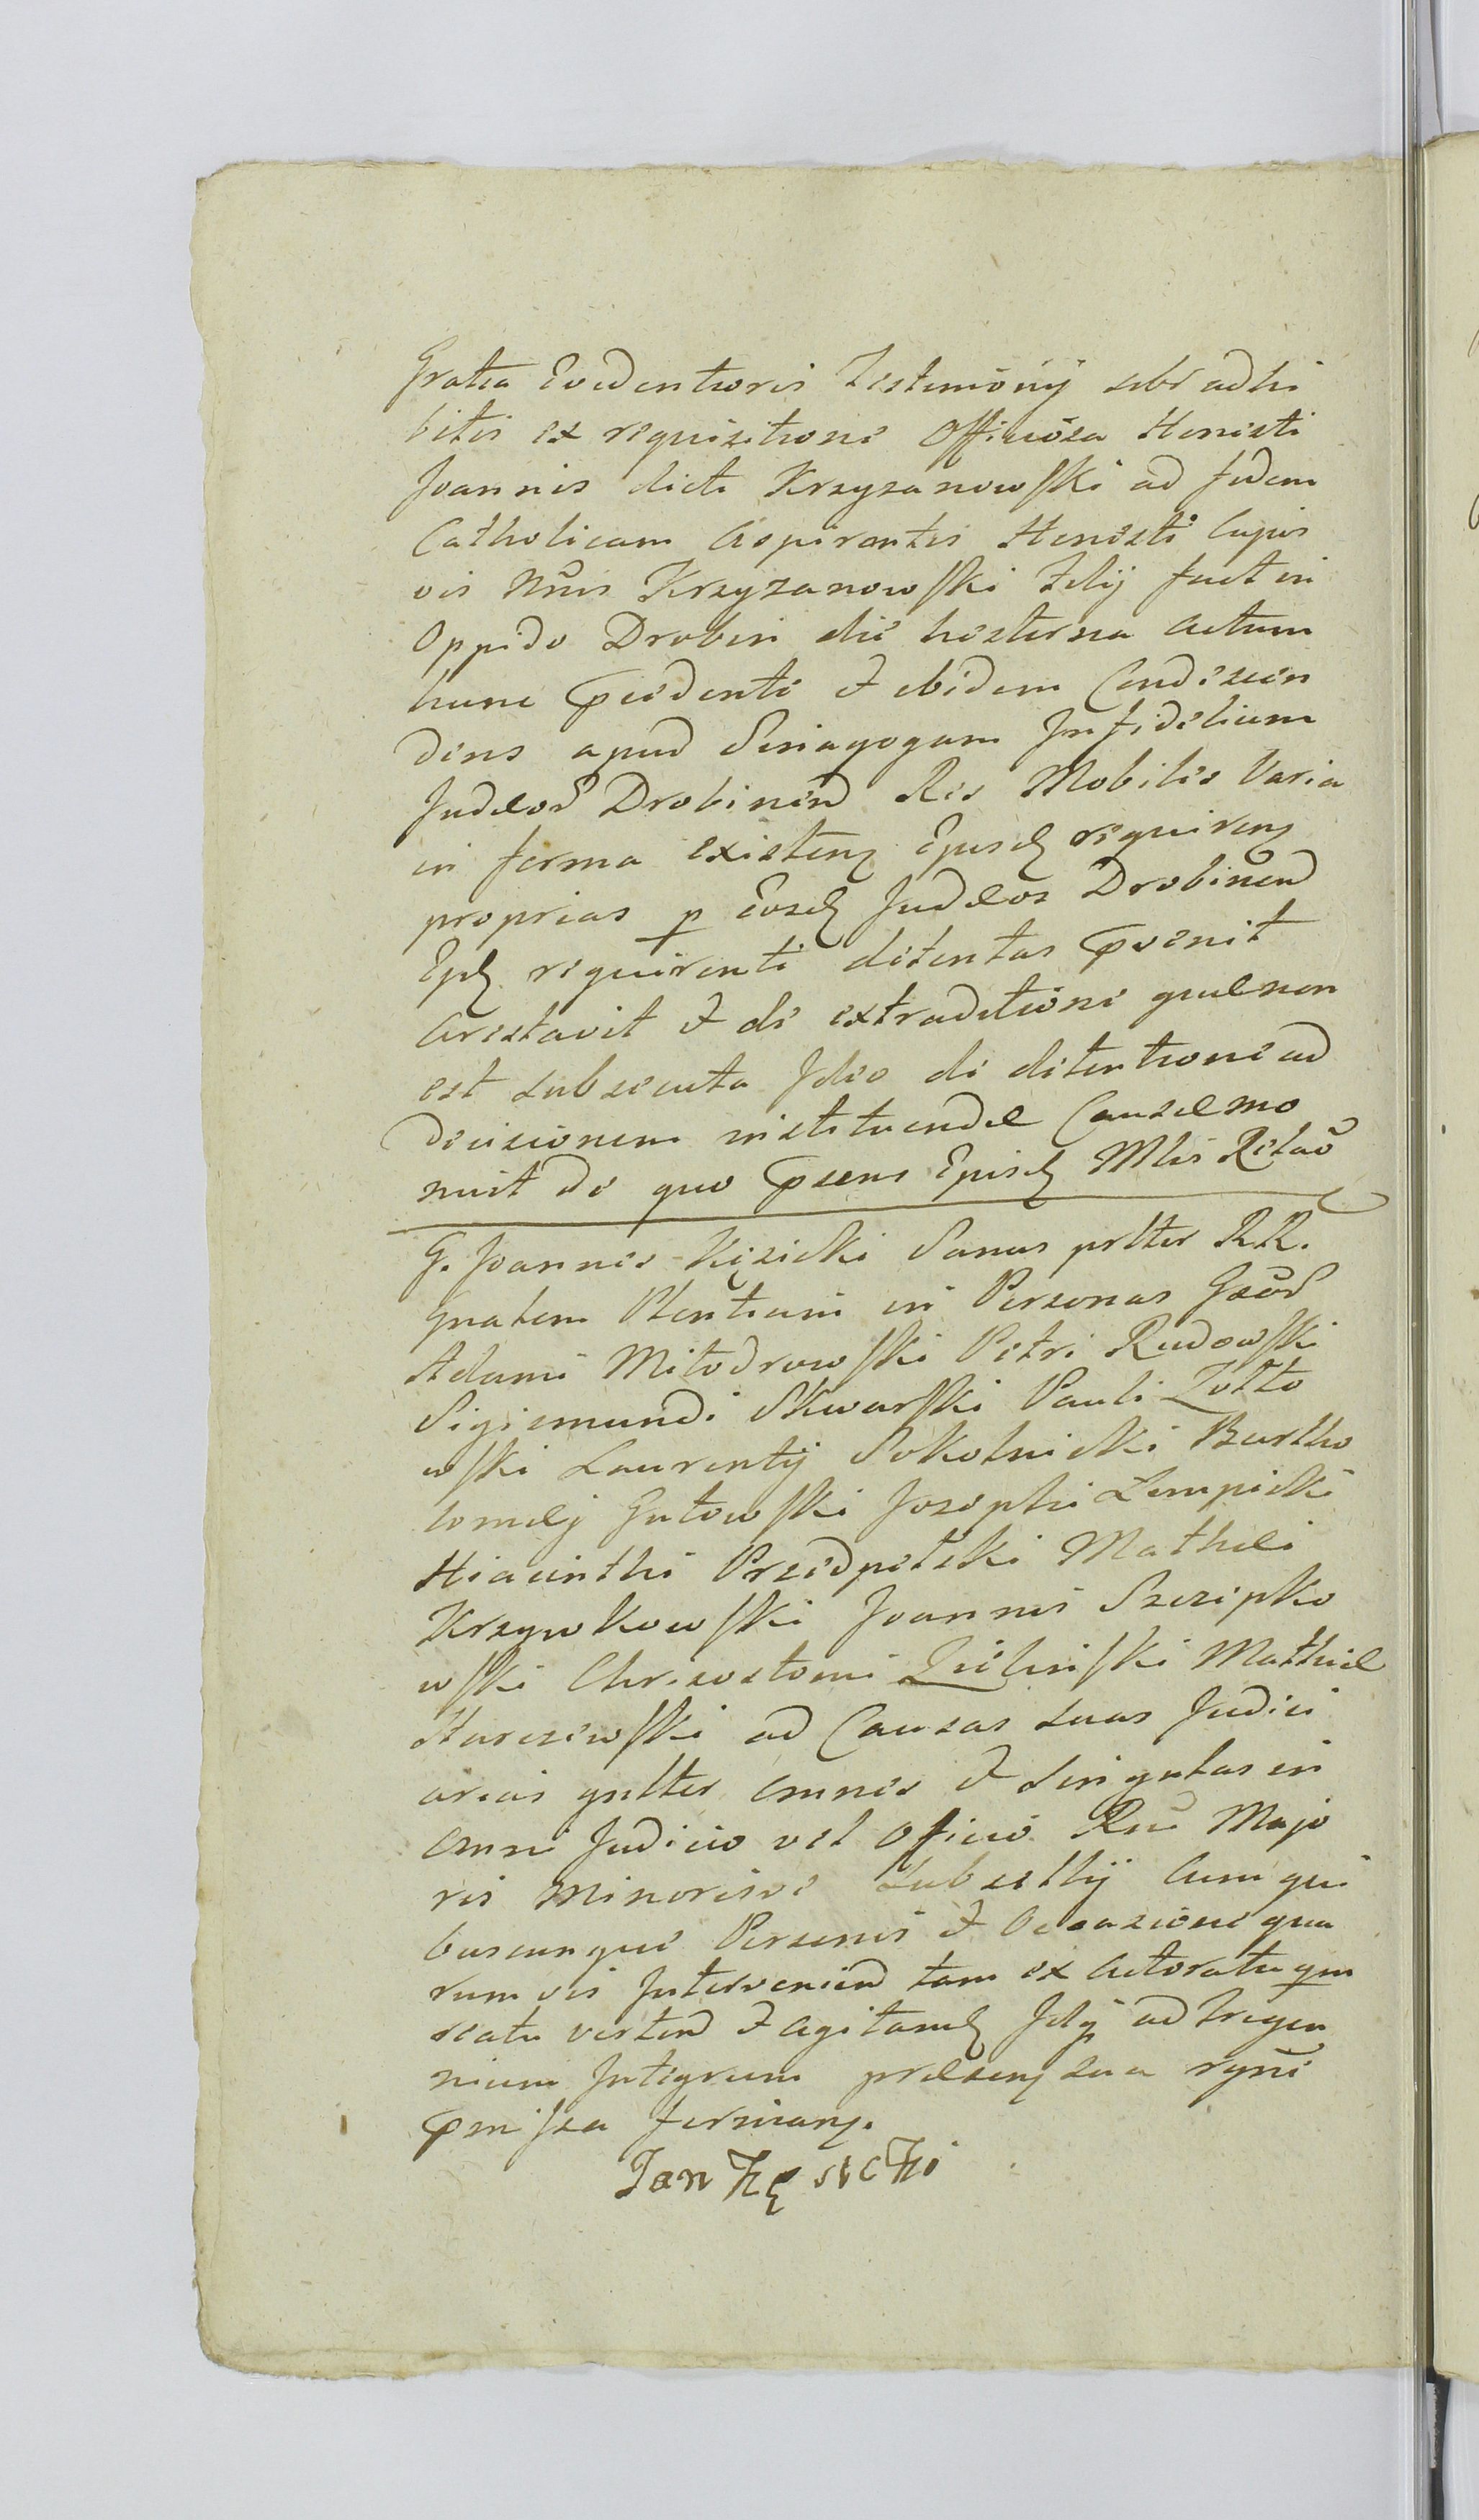 Gratia Evidentioris Testimonÿ sibi adhi
bitis ex requisitione Officiosa Honesti
Joannis dicti Krzyzanowski ad fidem
Catholicam Aspirantis Honesti cujus
vis Nnis Krzyzanowski Filÿ fuit in
Oppido Drobin die hesterna Actum
hunc pcedenti et ibidem Condescen
dens apud Sinagogam Infidelium
Judeor Drobinen Res Mobiles Varia
in forma existen Ejusd requiren
proprias p Eosd Judeos Drobinen
Eid requirenti detentas pvenit
Arestavit et de extraditione quæ non
est subsecuta Ideo de detentione ad
decisionem instituendæ Causæ mo
nuit de quo psens Ejusd Mlis Relao
G. Joannes Kęsicki Sanus prltter RR.
Gnalem Plentium in Personas Gsor
Adami Miłodrowski Petri Rudowski
Sigismundi Skwarski Pauli Żołto
wski Laurentÿ Sokolnicki Bartho
lomæj Gutowski Josephi Lempicki
Hiacinthi Przedpełski Mathei
Krzywkowski Joannis Szczepko
wski Chrisostomi Zielinski Mathiæ
Karczewski ad Causas suas Judici
arias gnltter omnes et singulas in
omni Judicio vel Oficio Rni Majo
ris Minorisve Subsellÿ cum qui
buscunque Personis et Occasione qua
rumvis Intervenien tam ex Actoratu qm
reatu verten et agitand Idÿ ad trigen
nium Integrum præsen sua ryne
pmissa fermian.
Jan Kęsicki